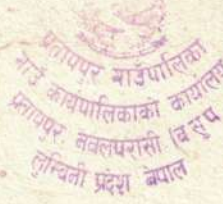 प्रतापपुर गाउँपालिका
गाउँ कार्यपालिकाको कार्यालय
प्रतापपुर नवलपरासी (ब सु प
लुम्बिनी प्रदेश नेपाल